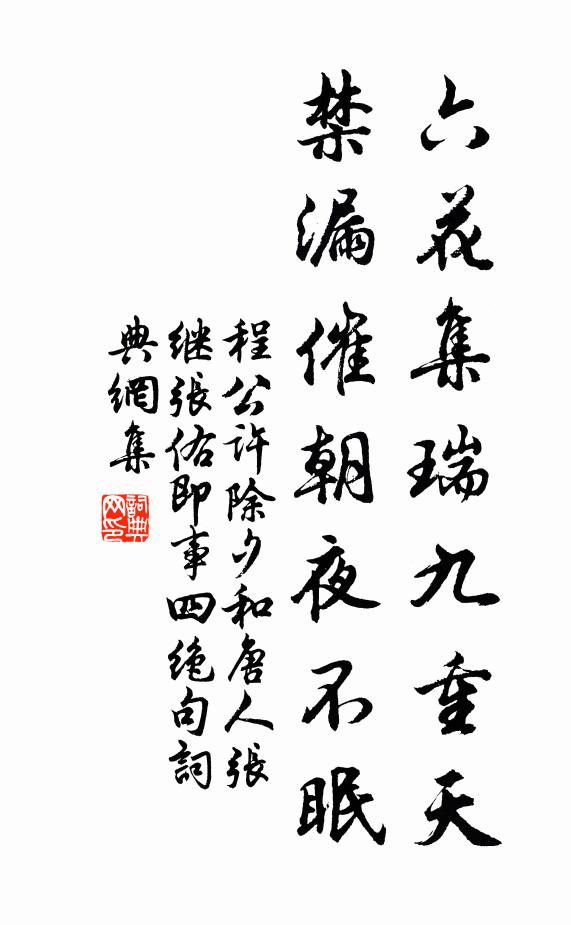 六花集瑞九重天
禁漏催朝夜不眠
程公许除夕和唐人张
继張佑即事四绝句詞
典網集
詞典网印